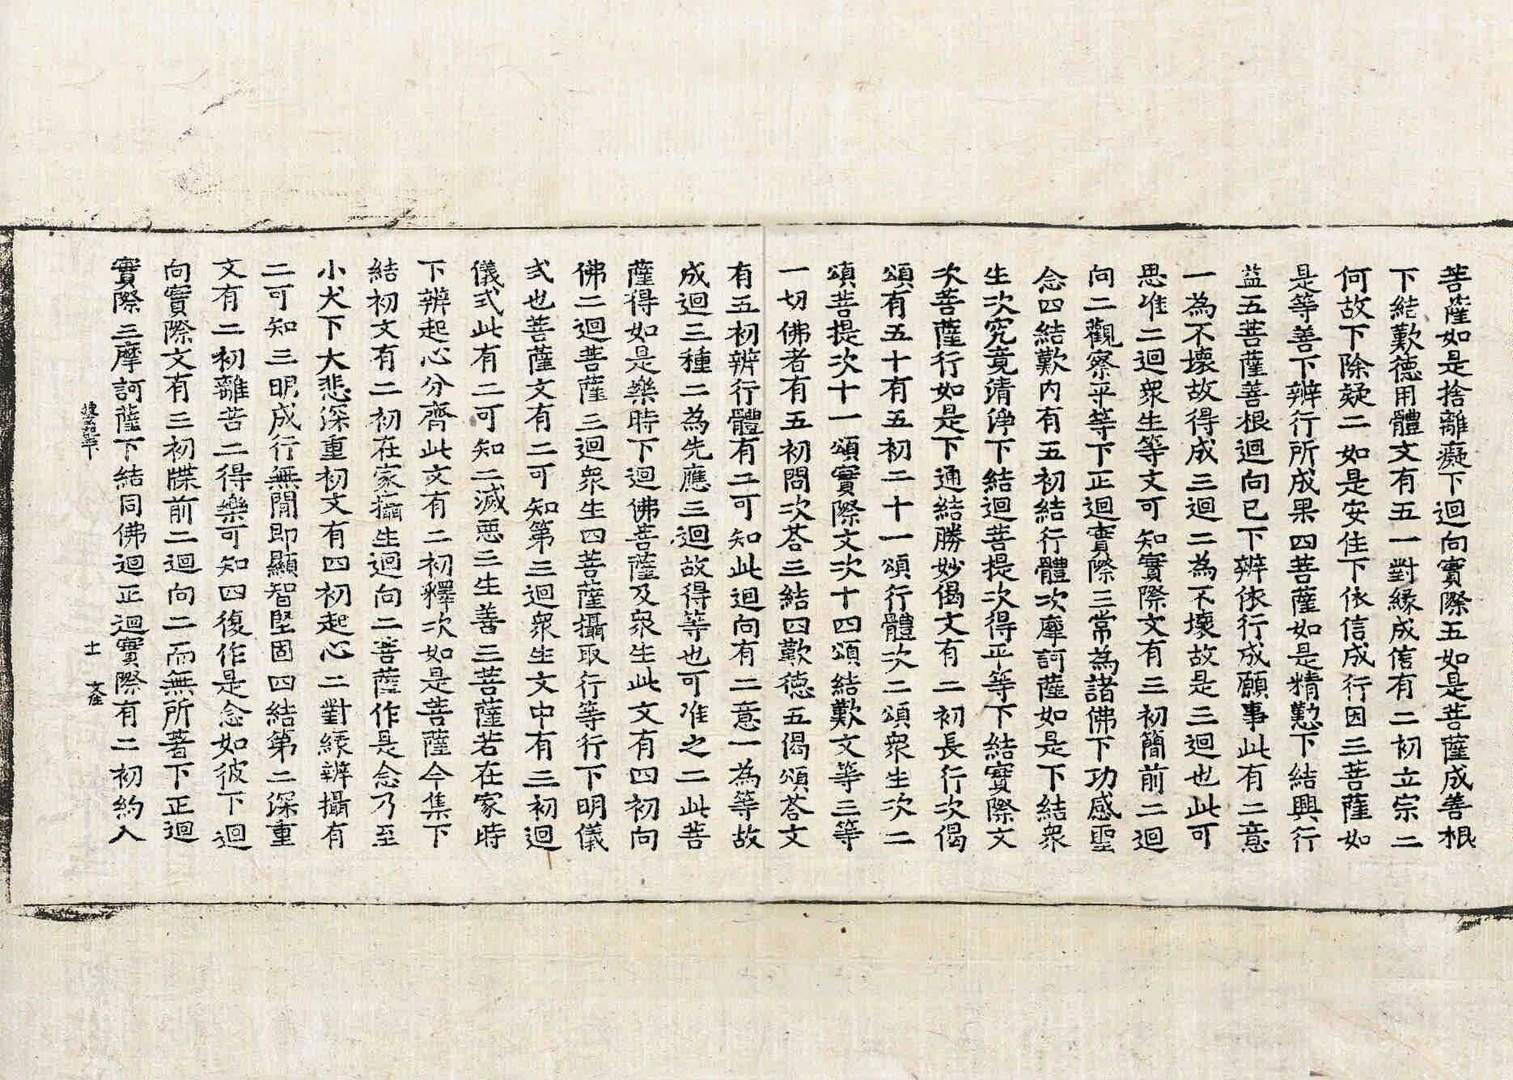 菩薩如是捨離癡下迴向實際五如是菩薩成善根
下結歎德用體文有五一對緣成信有二初立宗二
何故下除疑二如是安住下依信成行因三菩薩如
是等善下辨行所成果四菩薩如是精懃下結興行
益五菩薩善根迴向已下辨依行成願事此有二意
一為不壞故得成三迴二為不壞故是三迴也此可
思准二迴衆生等文可知實際文有三初簡前二迴
向二觀察平等下正迴實際三常為諸佛下功感聖
念四結歎內有五初結行體次摩訶薩如是下結衆
生次究竟清淨下結迴菩提次得平等下結實際文
次菩薩行如是下通結勝妙偈文有二初長行次偈
頌有五十有五初二十一頌行體次二頌衆生次二
頌菩提次十一頌實際文次十四頌結歎文等三等
一切佛者有五初問次荅三結四歎德五偈頌荅文
有五初辨行體有二可知此迴向有二意一為等故
成迴三種二為先應三迴故得等也可准之二此菩
薩得如是樂時下迴佛菩薩及衆生此文有四初向
佛二迴菩薩三迴衆生四菩薩攝取行等行下明儀
式也菩薩文有二可知第三迴衆生文中有三初迴
儀式此有二可知二滅惡三生善三菩薩若在家時
下辨起心分齊此文有二初釋次如是菩薩今集下
結初文有二初在家攝生迴向二菩薩作是念乃至
小犬下大悲深重初文有四初起心二對緣辨攝有
二可知三明成行無閒即顯智堅固四結第二深重
文有二初離苦二得樂可知四復作是念如彼下迴
向實際文有三初牒前二迴向二而無所著下正迴
實際三摩訶薩下結同佛迴正迴實際有二初約入